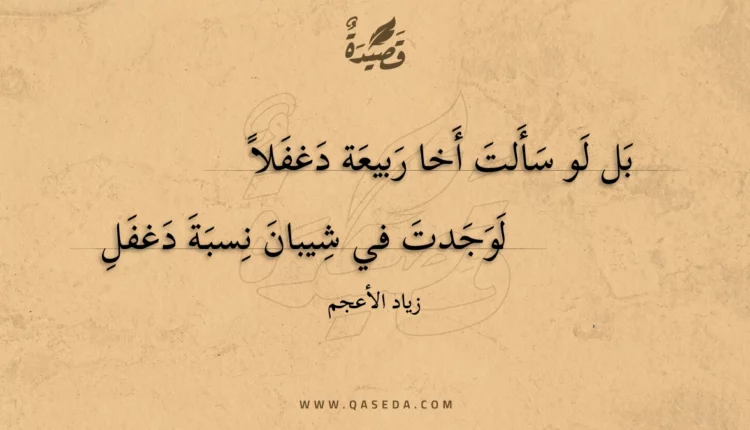 قَصِيدَةٌ
بَل لَو سَأَلتَ أَخا رَبيعَة دَغفَلاً
لَوَجَدتَ في شِيبانَ نِسبَةَ دَغفَلِ
زياد الأعجم
WWW.QASEDA.COM